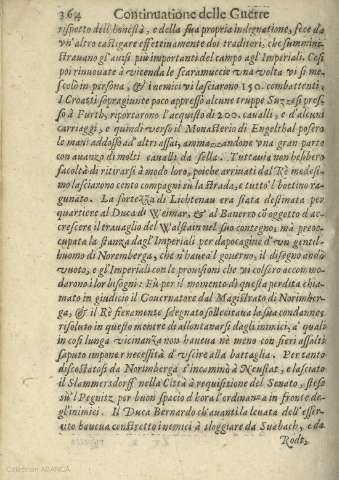 364 Continuatione delle Guerre
rispetto dell'honestà, e della sua propria indegnatione, fece da
vn'altro castigare effettiuamente doi traditori, che summini-
strauano gl'auisi più importanti del campo agl'Imperiali. Così
poi rinuouate à vicenda le scaramuccie vna volta vi si me-
scolò in persona, & i nemici vi lasciarono 150. combattenti,
I Croatti sopragiunte poco appresso alcune truppe Suzzesi pres-
so à Furth, riportarono l'acquisto di 200. caualli, e d'alcuni
carriaggi, e quindi verso il Monasterio di Engelthal posero
le mani addosso ad'altri assai, ammazzandone vna gran parte
con auanzo di molti caualli da sella. Tuttauia non hebbero
facoltà di ritirarsi à modo loro, poiche arriuati dal Rè medesi-
mo lasciarono cento compagni su la strada, e tutto'l bottino ra-
gunato. La fortezza di Lichtenau era stata destinata per
quartiere al Duca di Weimar, & al Banerro cō oggetto d'ac-
crescere il trauaglio del Walstain nel suo contegno, mà preoc-
cupata la stanza dagl'Imperiali per dapocagine d'vn gentil-
huomo di Noremberga, che n'haueua'l gouerno, il disegno andò
vuoto, e gl'Imperiali con le prouisioni che vi colsero accommo-
darono i lor bisogni. Fù per il momento di questa perdita chia-
mato in giudicio il Gouernatore dal Magistrato di Norimber-
ga, & il Rè fieramente sdegnato sollecitaua la sua condanna,
risoluto in questo mentre di allontanarsi dagl'inimici, a' quali
in così lunga vicinanza non haueua nè meno con fieri assalti
saputo imponer necessità d'vscire alla battaglia. Per tanto
discostatosi da Norimberga s'incaminò à Neustat, e lasciato
il Slammersdorff nella Città à requisitione del Senato, stese
sù'l Pegnitz per buon spacio d'hora l'ordinanza in fronte de-
gl'inimici. Il Duca Bernardo ch'auanti la leuata dell'esser-
cito haueua constretto i nemici à sloggiare da Suabach, e da
Rodt,
Colección ABANCA